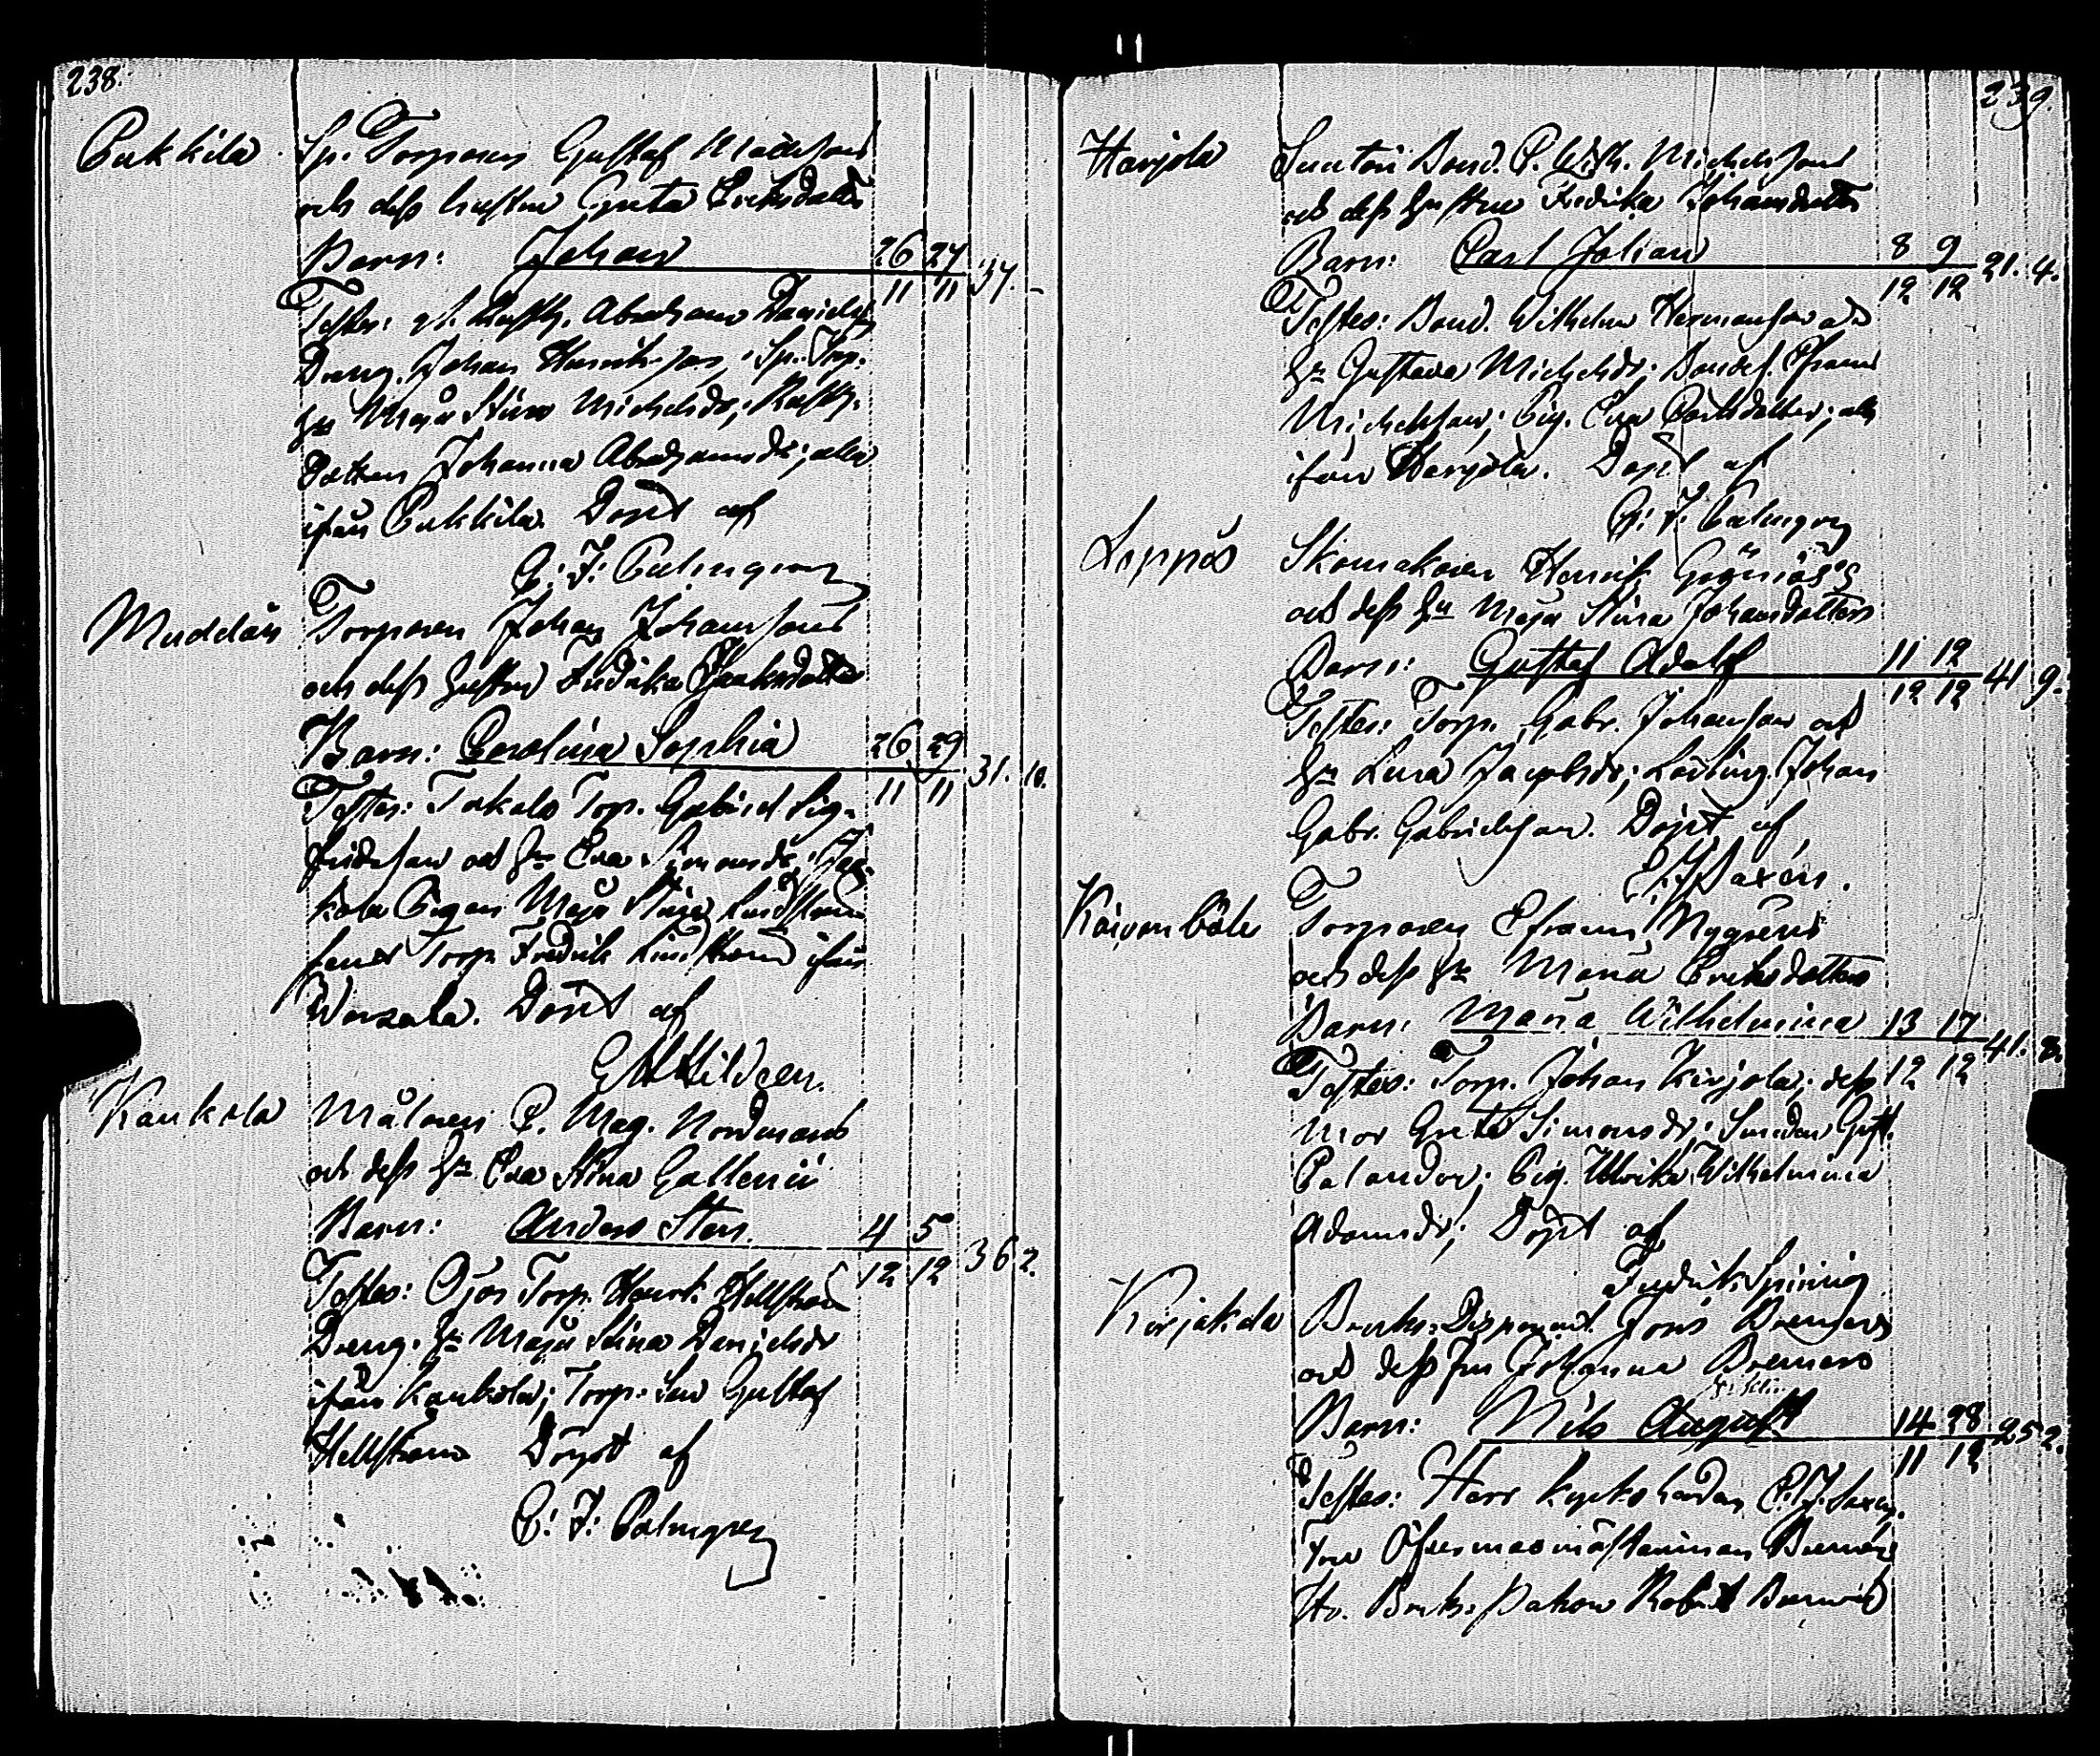 238.
Pukkila Sp. Torparen Gustaf
och dess hustru Greta Eriksdotters
Barn: Johan 26 27 37. -
11 11
Testes: Rusth. Abraham Daniels
Dreng. Johan Henriksson, Sp. Torp.
Hu Maja Stina Michelsdr; Rusth.
dottren Johanna Abrahamsdr; alla
ifrån Pukkila. Döpt af
C: F: Palmgren
Muddais Torparen Johan Johanssons
och dess hustru Fredrika Isaksdotters
Barn: Carolina Sophia 26 29 31. 10.
11 11
Testes: Torp. Gabriel Sig-
fridsson och Hu Eva Simonsdr;
kola Pigan Maja Stina Lindström
samt Torp. Fredrik Lindström ifrån
Warsala. Döpt af
G M Hildeen.
Kankola Målaren C. Mag. Nordmans
och dess Hu Eva Stina Gallenii
Barn: Anders Sten. 4 5 36 2.
12 12
Testes: Ojos Torp. Henrk. Hellström
Dreng. Hu Maja Stina Danielsdr
ifrån Kankola; Torp. Son Gustaf
Hellström Döpt af
C: F: Palmgren
239.
Harjola Suutari Bond. C. Wilh. Michelssons
och dess Hustru Fredrika Johansdotters
Barn: Carl Johan 8 9 21. 4.
12 12
Testes: Bond. Wilhelm Hermansson och
Hu Gustava Michelsdr; Bondes. Efraim
Michelsson; Pig. Eva Carlsdotter; alla
ifrån Harjola. Döpt af
C: F: Palmgren
Leppäs Skomakaren Henrik Grönroos's
och dess Hu Maja Stina Johansdotters
Barn: Gustaf Adolf 11 12 41 9.
12 12
Testes: Torp. Gabr. Johansson och
Hu Lena Jacobsdr; Lärling Johan
Gabr. Gabrielsson. Döpt af
E: J Saxén.
Kaivomböle Torparen Efraim Nygrens
och dess Hu Maria Eriksdotters
Barn: Maria Wilhelmina 13 17 41. 8.
12 12
Testes: Torp. Johan Kirjola; dess
Mor Greta Simonsdr; Smeden Gust.
Palander; Pig. Ulrika Wilhelmina
Adamsdr; Döpt af
Fredrik Spiring
Kirjakala Bruks-Disponent. Joris Bremers
och dess Fru Johanna Bremers
Barn: Nils August 14 28 25 2.
11 12
Testes: Herr Kyrkoherden E. J. Saxen.
Fru Öfvermasmästarinnan Bremer
Hr. Bruks-Patron Robert Bremer